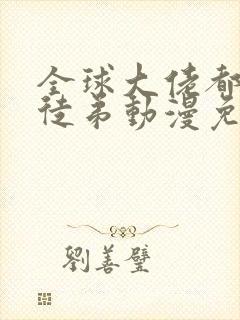 全球大佬都
徒弟動漫免
劉善璧